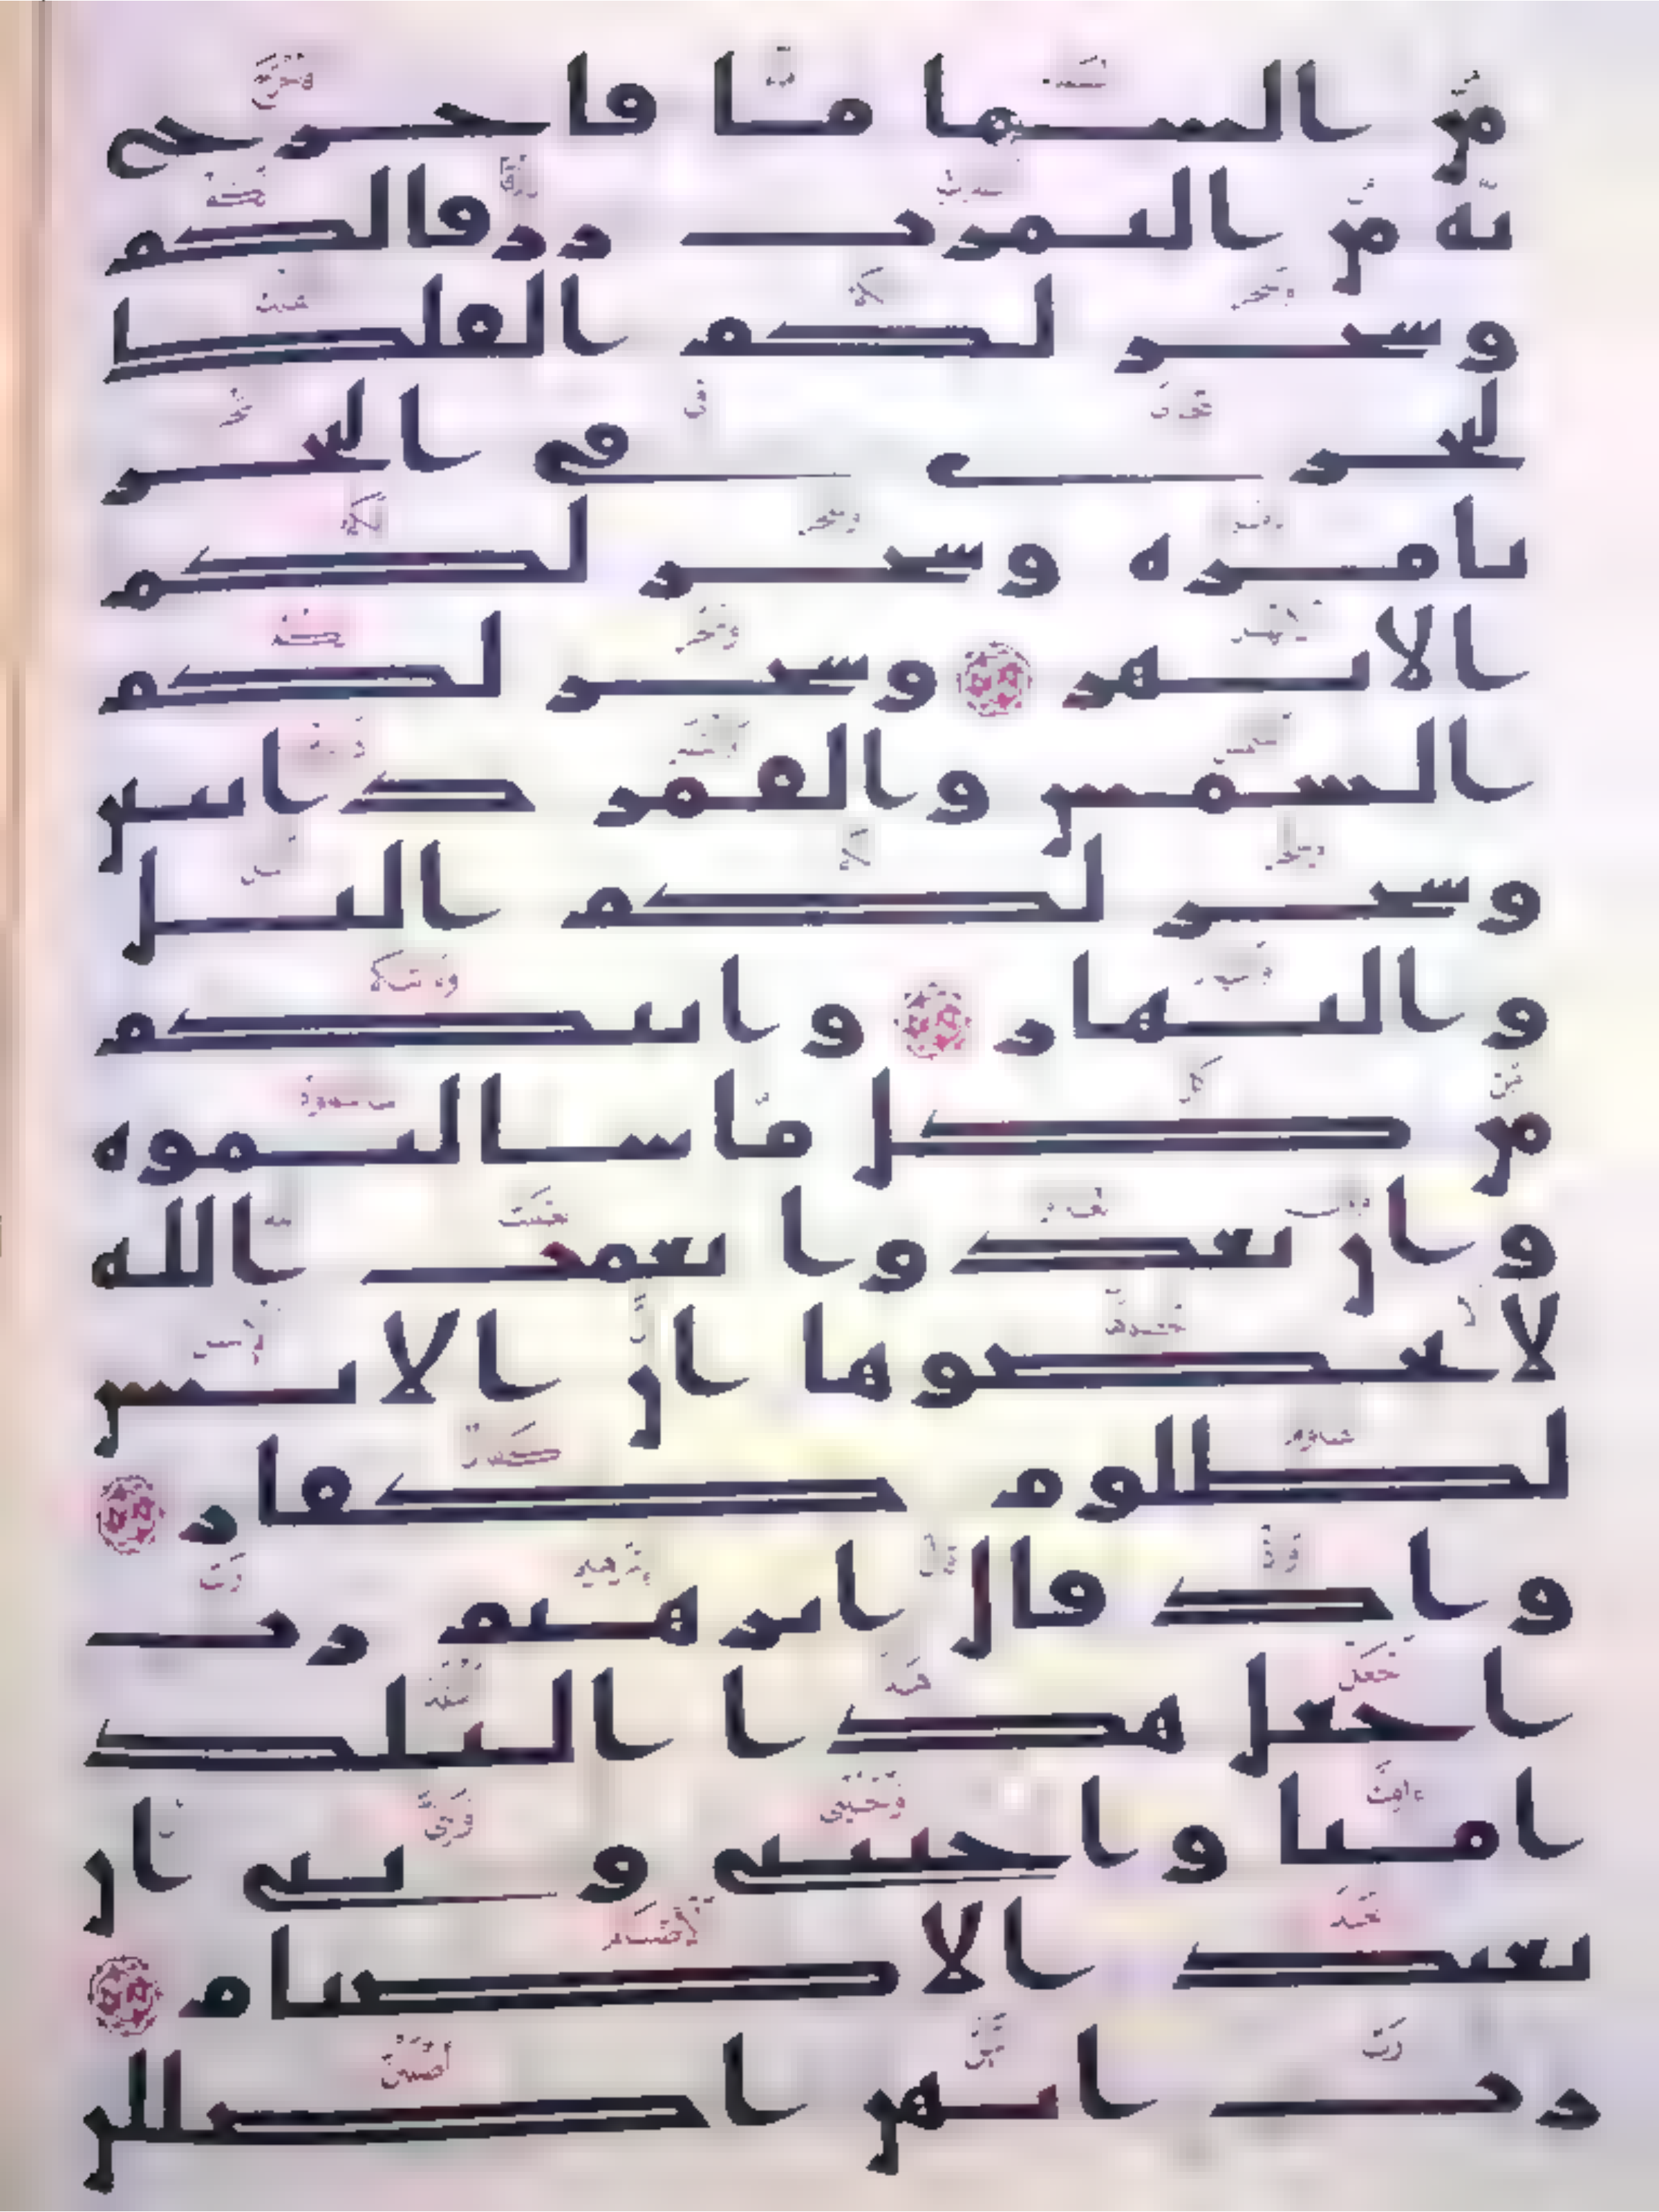 من السما ما فاخرج
به من الثمرت رزقا لكم
وسخر لكم الفلك
لتجري في البحر
بامره وسخر لكم
الانهر وسخر لكم
الشمس والقمر دابين
وسخر لكم اليل
والنهار واتيكم
من كل ما سالتموه
وان تعدوا نعمت الله
لا تحصوها ان الانسن
لظلوم كفار
واذ قال ابرهيم رب
اجعل هذا البلد
امنا واجنبني وبني ان
نعبد الاصنام
رب انهن اضللن